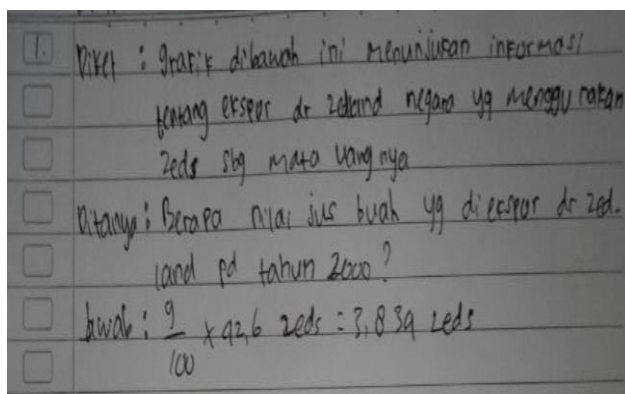 1. Diket : grafik dibawah ini Menunjukan informasi
tentang ekspor dr zedland negara yg menggunakan
zeds sbg mata uang nya
Ditanya : Berapa nilai jus buah yg diekspor dr zed.
land pd tahun 2000?
Jawab : 9/100 x 42,6 zeds = 3,834 zeds